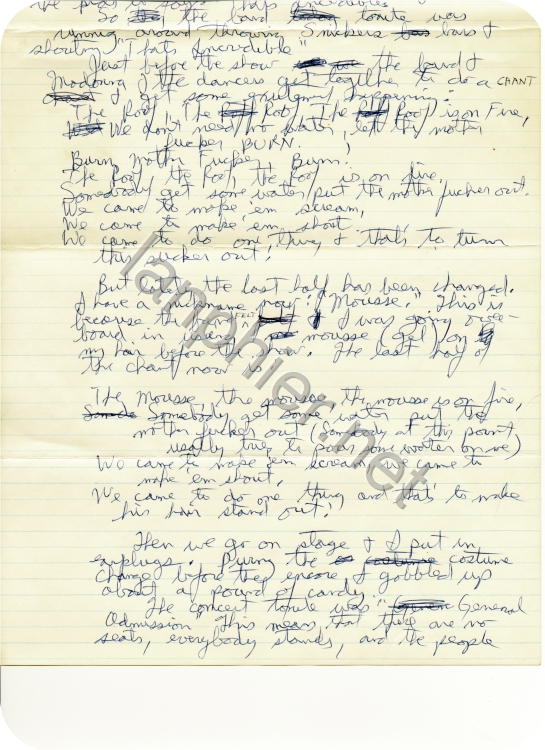 he puts in says "thats incredible"
So all the band tonite was
running around throwing Snickers bars &
shouting "Thats Incredible"
Just before the show the band &
Madonna & the dancers get together to do a CHANT
& get some energy happening:
The Roof, The Roof, The Roof is on Fire,
We don't need no water, let the mother
fucker BURN.
Burn Mother Fucker, Burn!
The Roof, the Roof, the Roof is on fire,
Somebody get some water, put the mother fucker out.
We came to make 'em scream,
We came to make 'em shout
We came to do one thing & that's to turn
this sucker out!
But lately the last half has been changed.
I have a nickname now: "Mousse." This is
because the band FELT I was going over-
board in using mousse (gel) on
my hair before each show. The last half of
the chant now is
The Mousse, the mousse, the mousse is on fire,
Somebody get some water put the
mother fucker out (Somebody at this point
usually tries to pour some water on me)
We came to make 'em scream, we came to
make 'em shout,
We came to do one thing and that's to make
his hair stand out!
Then we go on stage & I put in
earplugs. During the costume
change before the encore I gobbled up
about a pound of candy.
The concert tonite was "General
Admission" This means that there are no
seats, everybody stands, and the people
lanphier.net